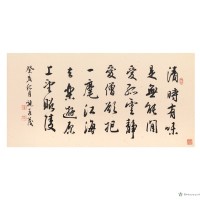 清時有味
是無能閒
愛孤雲靜
愛僧欲把
一麾江海
去樂遊原
上望昭陵